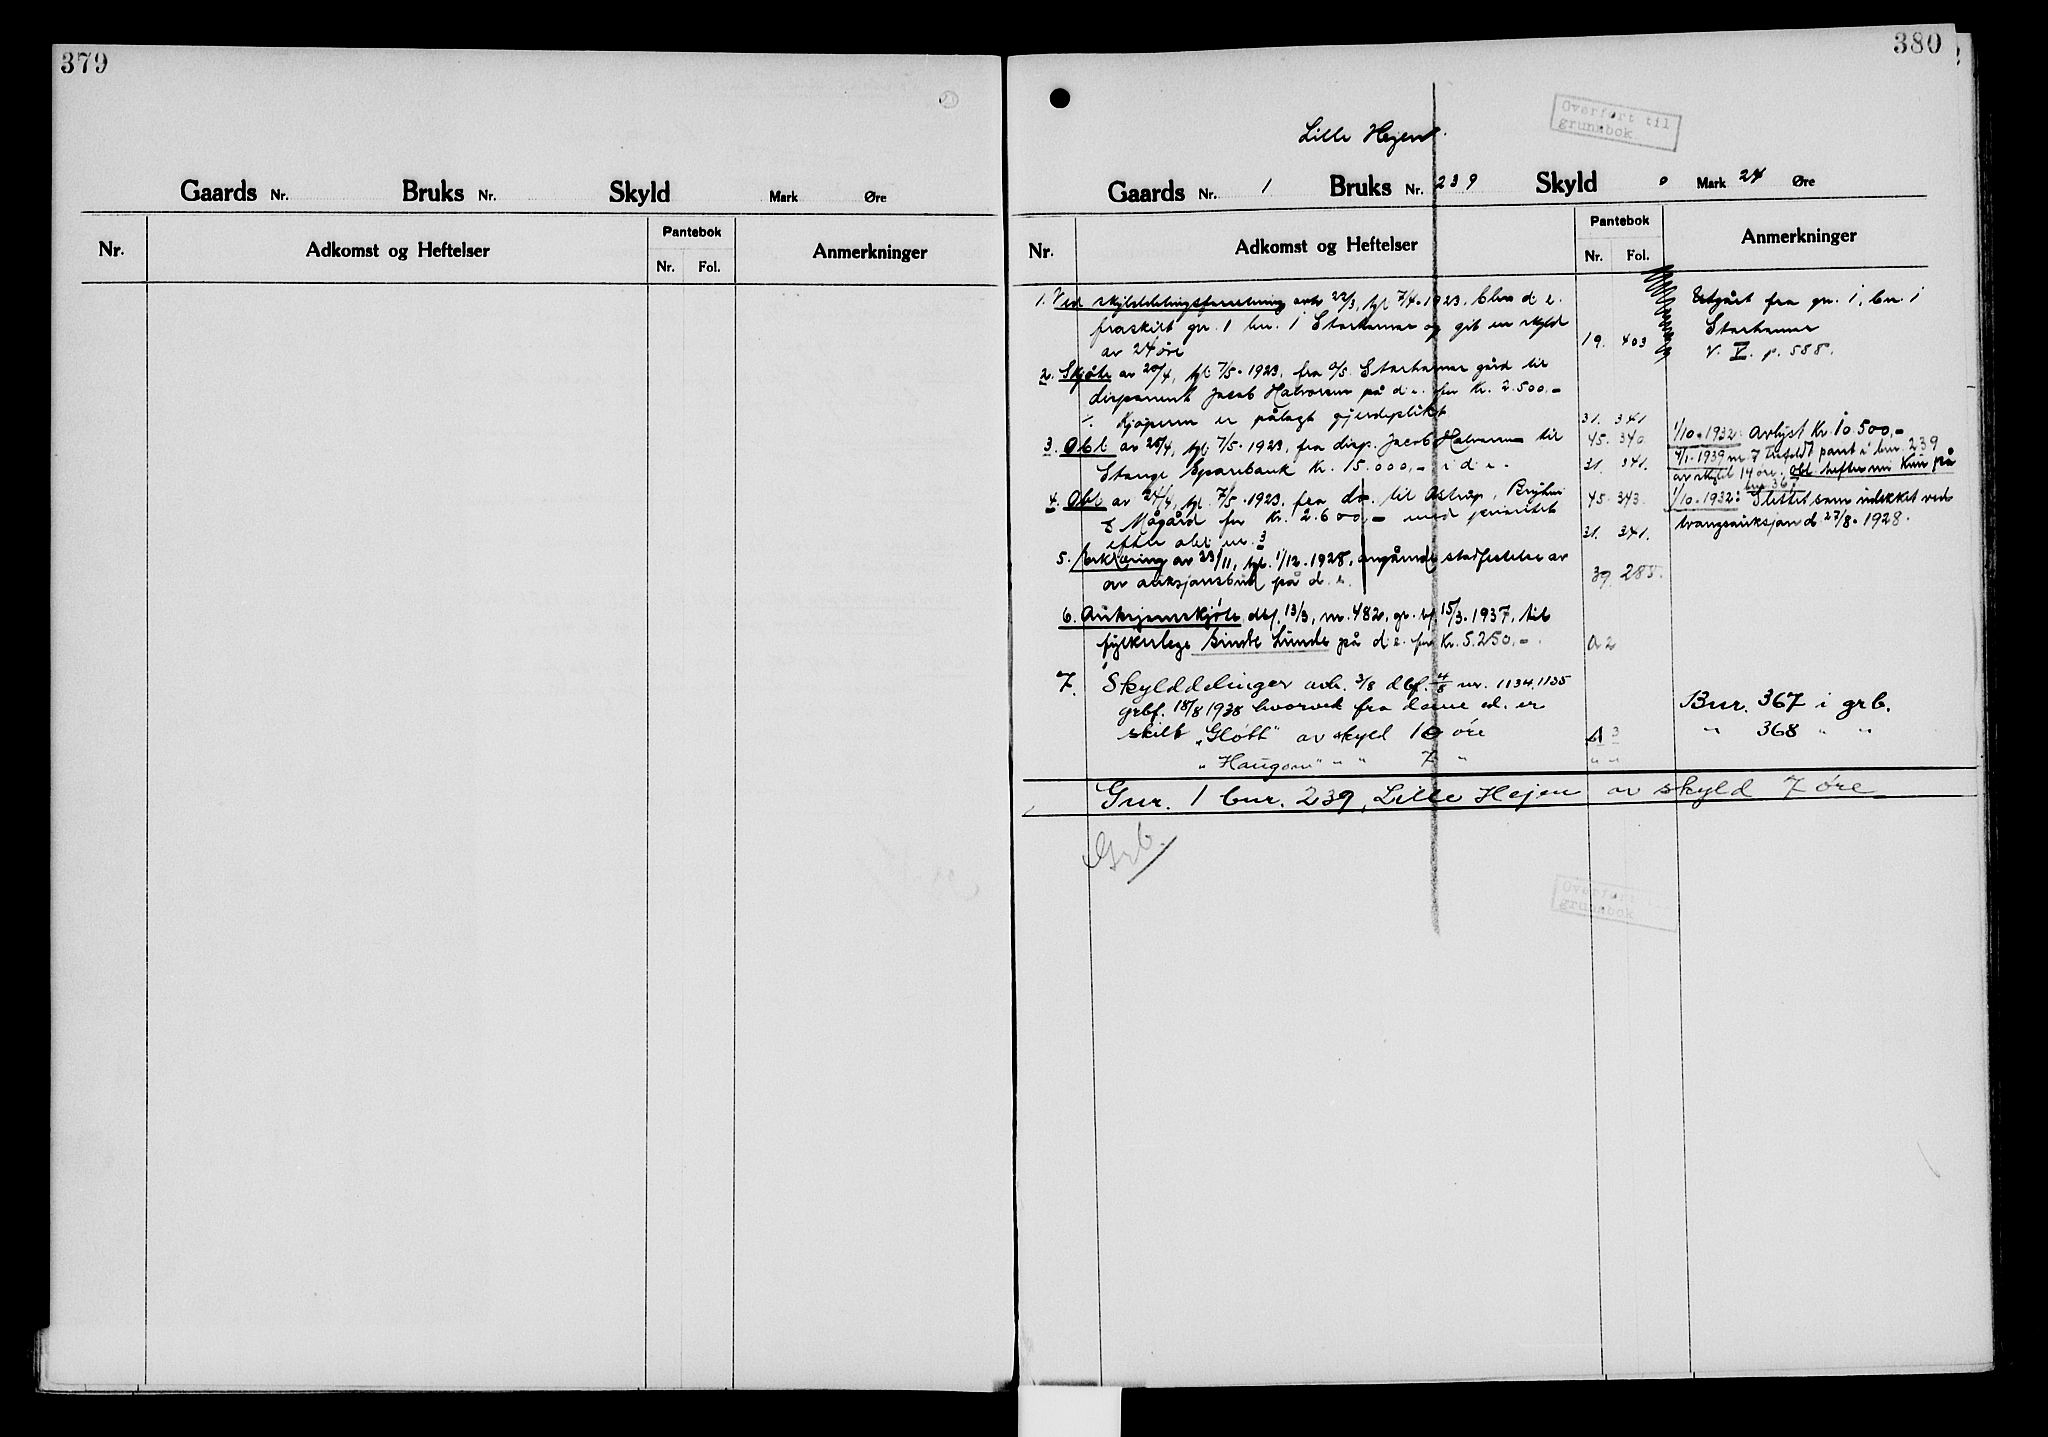 379
Gaards Nr. Bruks Nr. Skyld Mark Øre
Nr. Adkomst og Heftelser Pantebok Anmerkninger
Nr. Fol.
380
Overført til
grunnbok
Lille Hejen
Gaards Nr. 1 Bruks Nr. 239 Skyld 0 Mark 24 Øre
Nr. Adkomst og Heftelser Pantebok Anmerkninger
Nr. Fol.
1. Ved skylddelingsforretning avh. 22/3, tgl. 7/4-1923, blev d. e.
fraskilt gn. 1 bn. 1 Starhamar og git en skyld
av 24 øre 19. 403
Utgått fra gn. 1, bn. 1
Starhamar
V. V. p. 558.
2. Skjøte av 20/4, tgl. 7/5-1923, fra A/S Starhamar gård til
disponent Jacob Halvorsen på d. e. for kr. 2.500,-
Kjøperen er pålagt gjerdeplikt 31. 341
3. Obl. av 20/4, tgl. 7/5-1923, fra disp. Jacob Halvorsen til 45. 340
Stange Sparebank kr. 15.000,- i d. e. 31. 341.
1/10-1932: Avlyst kr. 10.500,-
4/1-1939 nr. 7 frafaldt pant i bnr. 239
av skyld 14 øre. Obl. hefter nu kun på
bnr. 367
4. Obl. av 24/4, tgl. 7/5-1923, fra do. til Astrup, Bryhni 45. 343.
& Mågård for kr. 2.600,- med prioritet
efter obl. nr. 3 31. 341.
1/10-1932: Slettet som udekket ved
tvangsauksjon d. 27/8-1928.
5. Erklæring av 23/11, tgl. 1/12-1928, angående stadfestelse av
av auksjonsbud på d. e. 39. 285.
6. Auksjonsskjøte dbf. 13/3, nr. 482, gr. bf. 15/3-1937, til
fylkeslege Sinde Lunde på d. e. for kr. 5.250,- A 2
7. Skylddelinger avh. 3/8 dbf. 4/8 nr. 1134, 1135
grbf. 18/8 1938 hvorved fra denne ed. er
skilt "Gløtt" av skyld 10 øre A 3
"Haugom" " " 7 " " "
Bnr. 367 i grb.
" 368 " "
Gnr. 1 bnr. 239, Lille Hejen av skyld 7 øre
Grb.
Overført til
grunnbok